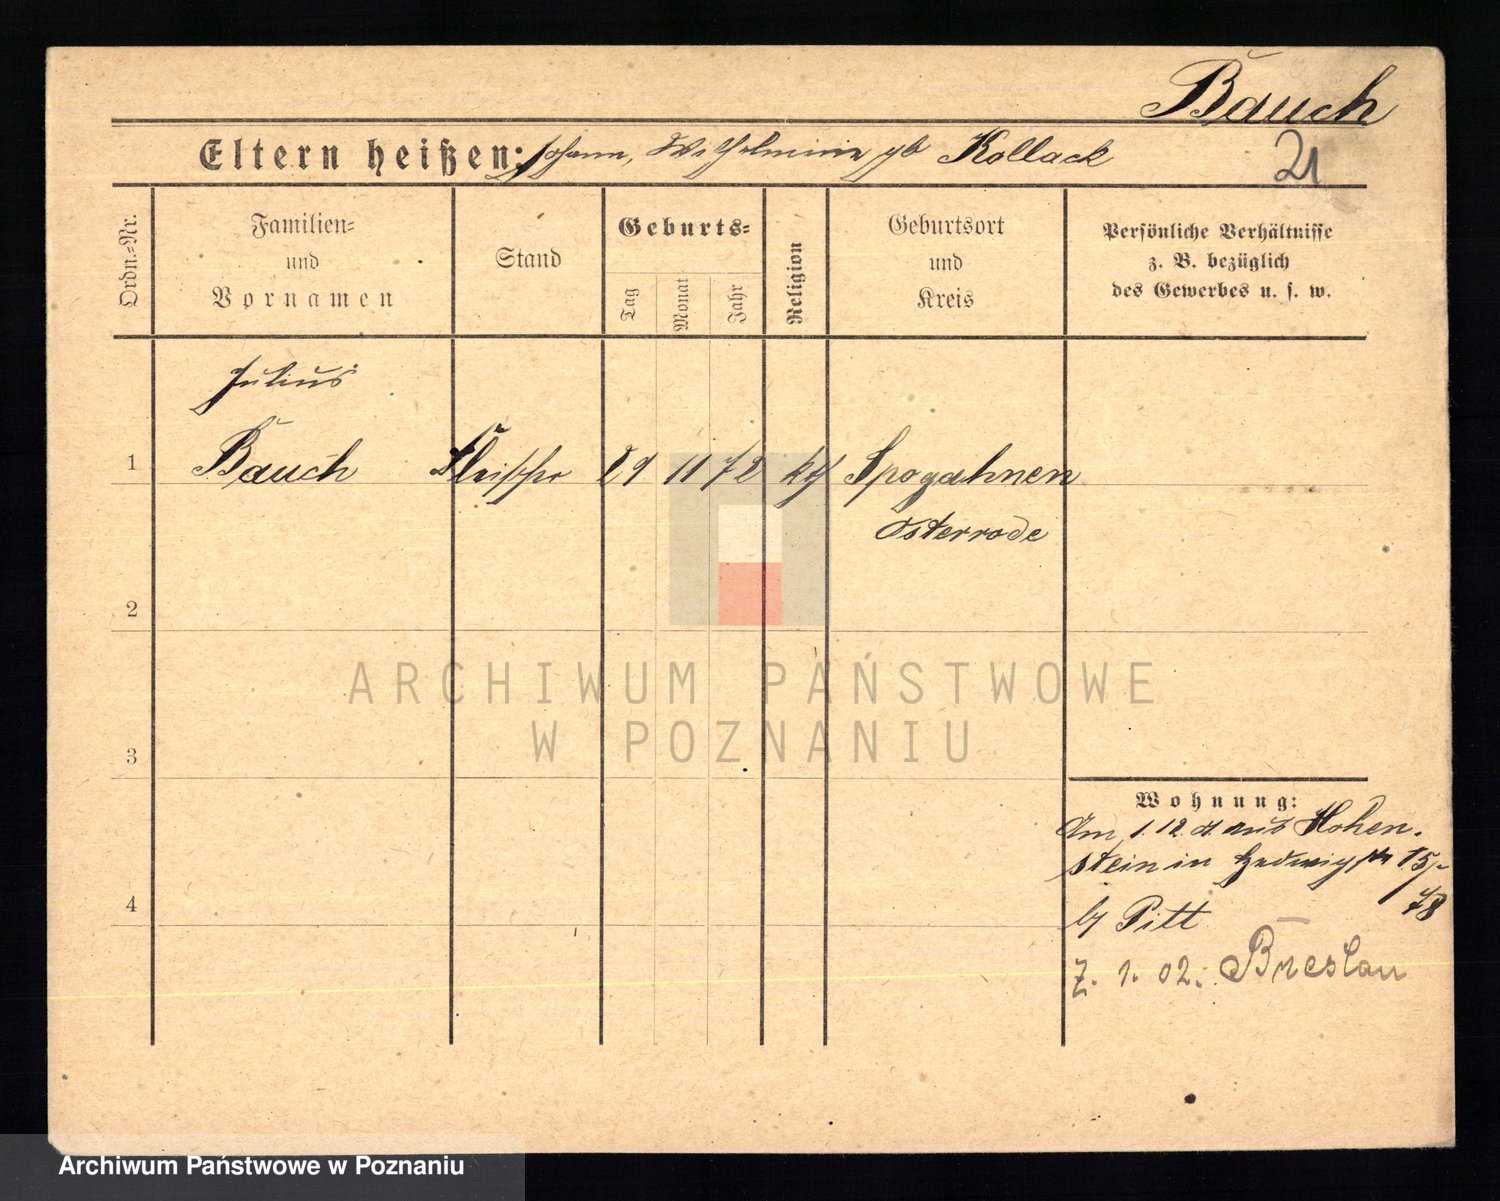 Bauch
Eltern heißen: Johann, Wilhelmine gb Kollack
21
Ordn.-Nr.
Familien-
und
Vornamen
Stand
Geburts-
Tag
Monat
Jahr
Religion
Geburtsort
und
Kreis
Persönliche Verhältnisse
z. B. bezüglich
des Gewerbes u. s. w.
Julius
1 Bauch Fleischer 29 11 72 kth Spogahnen
Osterrode
2
3
4
ARCHIWUM PAŃSTWOWE
W POZNANIU
Wohnung:
Am 1. 12. aus Hohen-
stein in Hedwigstr 15
78
by Pitt
Z. 1. 02. Breslau
Archiwum Państwowe w Poznaniu